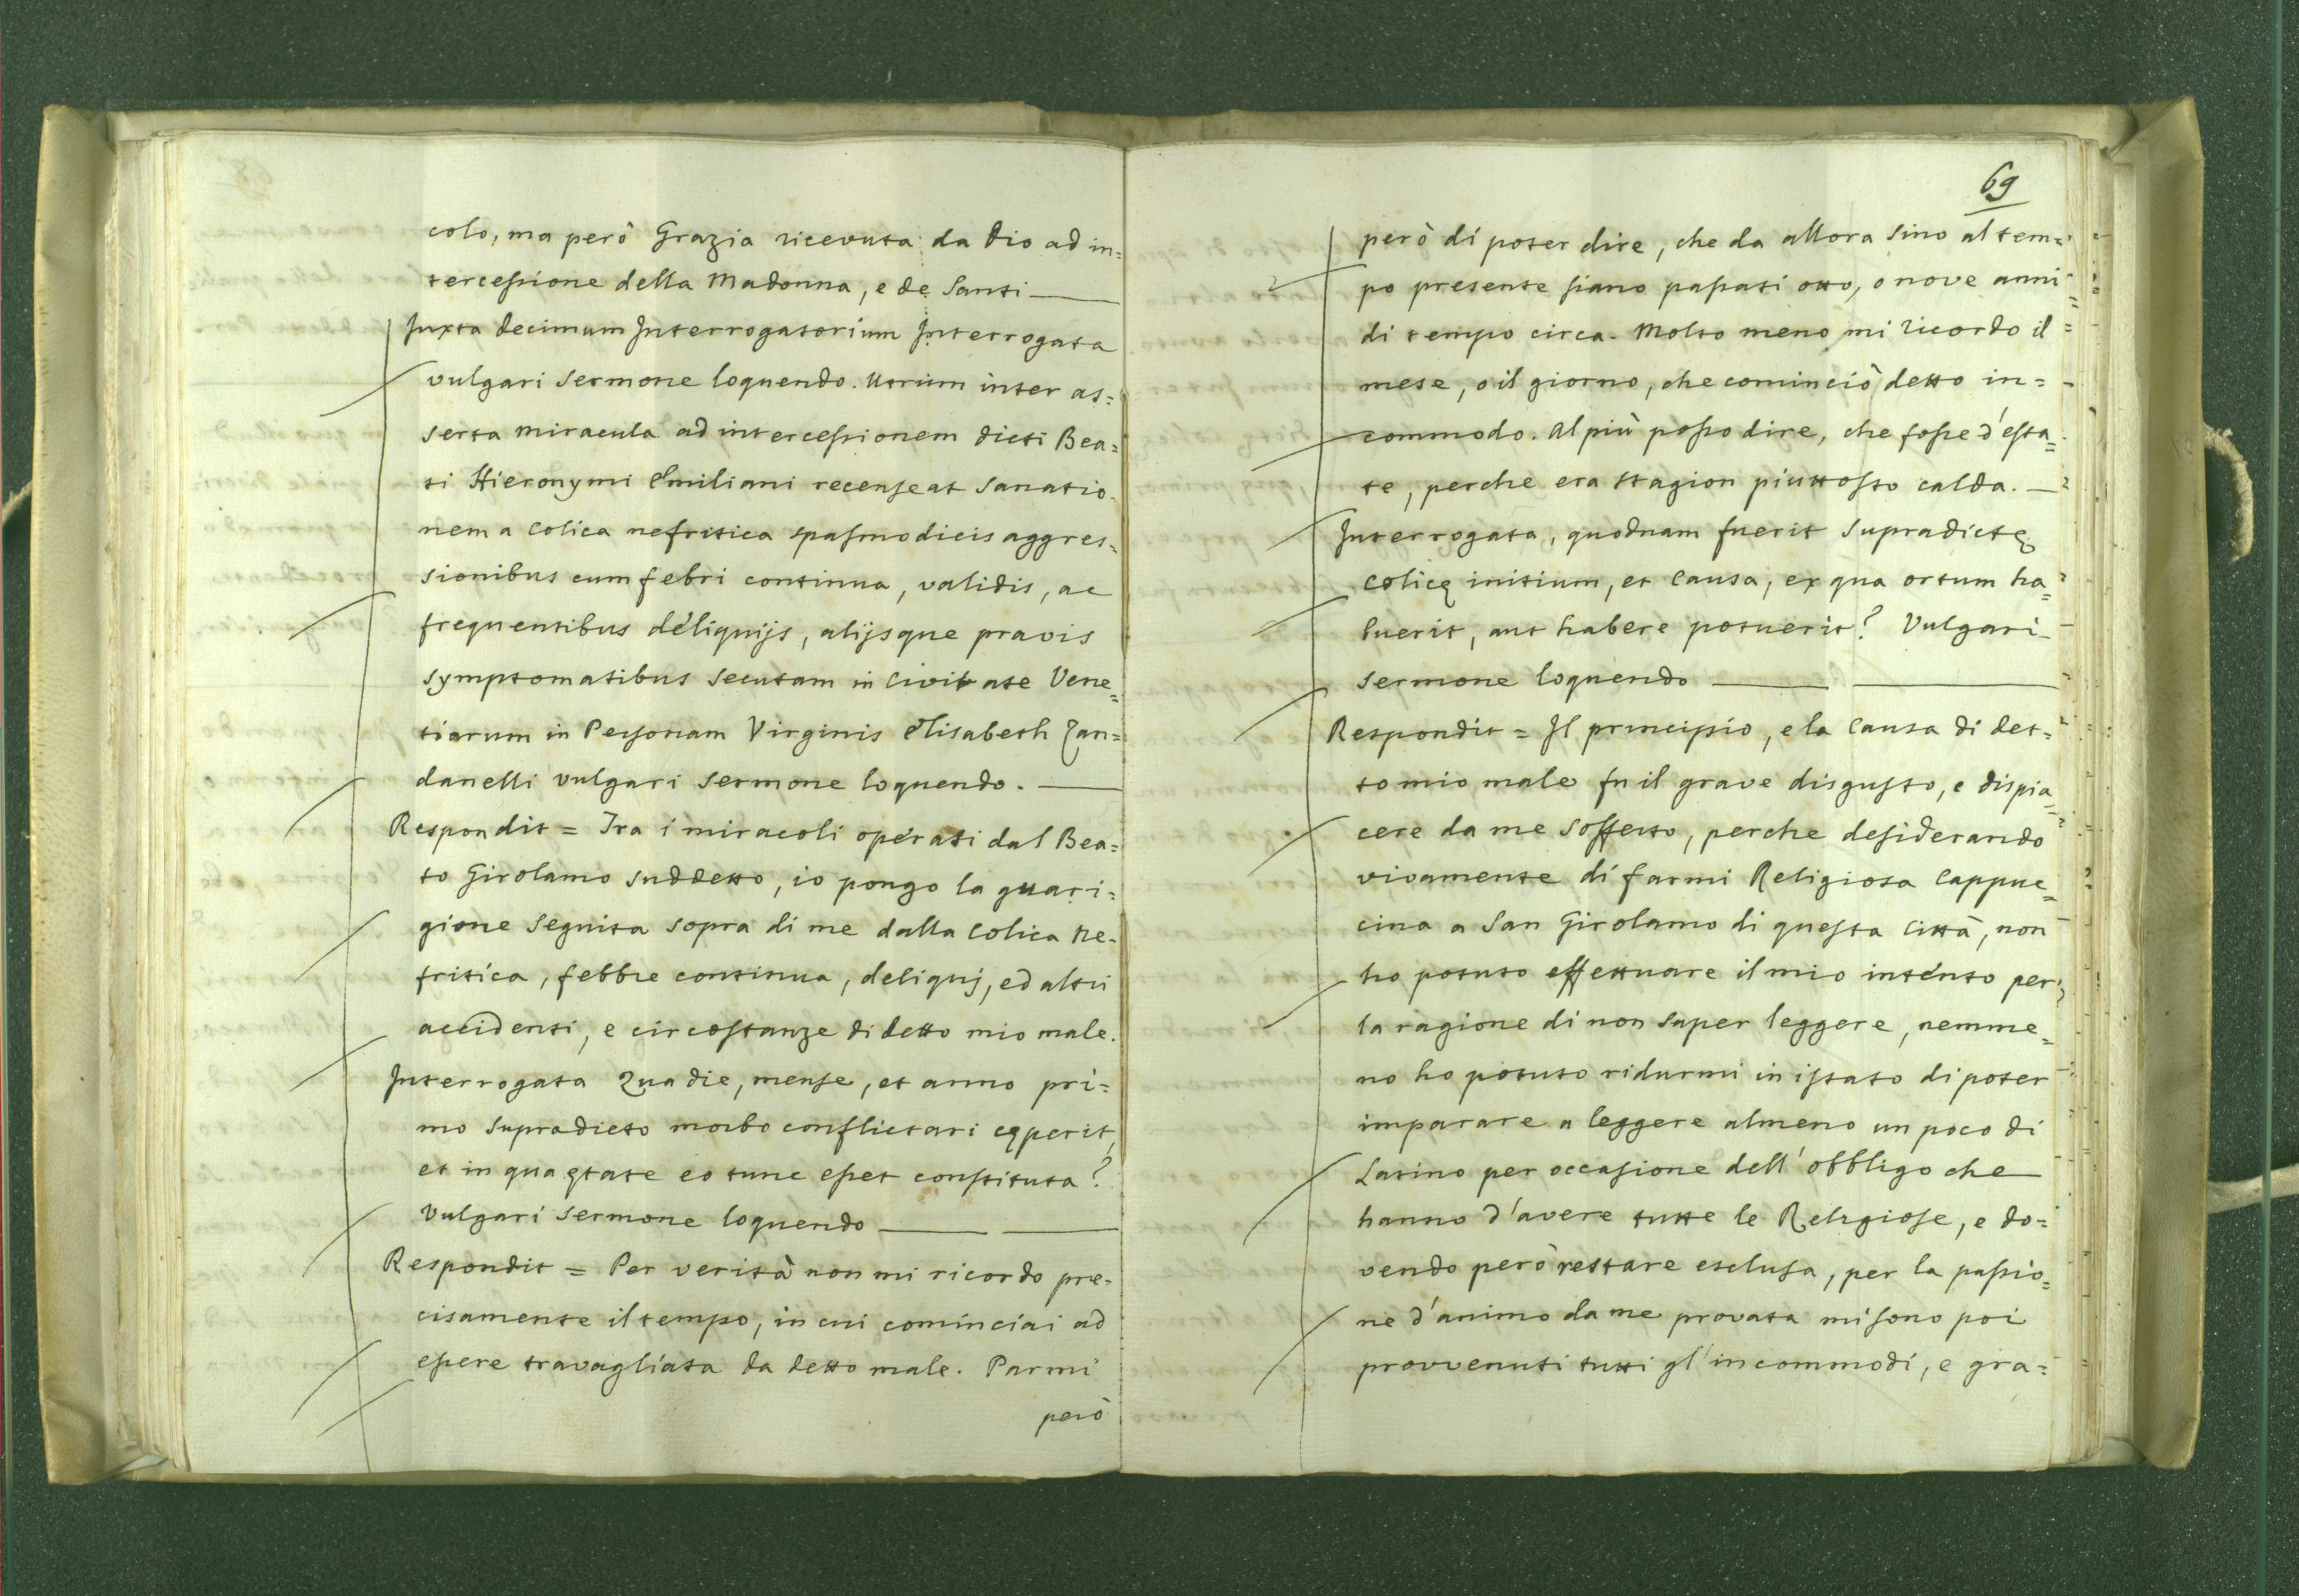 colo, ma però Grazia ricevuta da Dio ad in=
tercessione della Madonna, e de Santi
Juxta decimum Interrogatorium Interrogata
vulgari sermone loquendo. Utrum inter as=
serta miracula ad intercessionem dicti Bea=
ti Hieronymi Emiliani recenseat sanatio=
nem a Colica nefritica spasmodicis aggres=
sionibus cum febri continua, validis, ac
frequentibus deliquijs, alijsque pravis
symptomatibus secutam in Civitate Vene=
tiarum in Personam Virginis Elisabeth Zan=
danelli vulgari sermone loquendo.
Respondit = Tra i miracoli operati dal Bea=
to Girolamo suddetto, io pongo la guari=
gione seguita sopra di me dalla Colica Ne=
fritica, febbre continua, deliquj, ed altri
accidenti, e circostanze di detto mio male.
Interrogata Qua die, mense, et anno pri=
mo supradicto morbo conflictari cęperit,
et in qua ętate eo tunc esset constituta?
Vulgari sermone loquendo
Respondit = Per verità non mi ricordo pre=
cisamente il tempo, in cui cominciai ad
essere travagliata da detto male. Parmi
però
69
però di poter dire, che da allora sino al tem=
po presente siano passati otto, o nove anni
di tempo circa. Molto meno mi ricordo il
mese, o il giorno, che cominciò detto in=
commodo. Al più posso dire, che fosse d'esta=
te, perche era stagion piuttosto calda.
Interrogata, quodnam fuerit supradictę
colicę initium, et Causa, ex qua ortum ha=
buerit, aut habere potuerit? Vulgari
sermone loquendo
Respondit = Il principio, e la Causa di det=
to mio male fu il grave disgusto, e dispia=
cere da me sofferto, perche desiderando
vivamente di farmi Religiosa Cappuc=
cina a San Girolamo di questa Città, non
ho potuto effettuare il mio intento per
la ragione di non saper leggere, nemme=
no ho potuto ridurmi in istato di poter
imparare a leggere almeno un poco di
Latino per occasione dell'obbligo che
hanno d'avere tutte le Religiose, e do=
vendo però restare esclusa, per la passio=
ne d'animo da me provata mi sono poi
provvenuti tutti gl'incommodi, e gra=